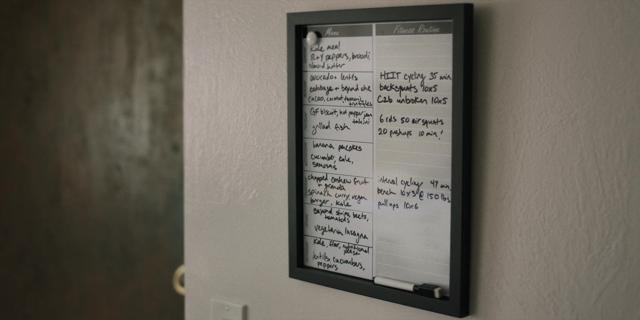 Menu
Kale meal
peppers,
almond butter
avocado + lentils
cabbage + beyond
cacao, coconut
GF biscuit, hot pepper jam
grilled fish
banana pancakes
cucumber, kale,
samosas
chopped cashew fruit
+ granola
spinach curry, vegan
burger, kale
Beyond strips, beets,
tomatoes
vegetarian lasagna
Kale,
lentils, cucumbers,
peppers
Fitness Routine
HIIT cycling 35 min
backsquats 10x5
C2b unbroken 10x5
6 rds 50 air squats
20 pushups 10 min!
interval cycling 47 min.
bench 10x3 @ 150 lbs
pullups 10x6